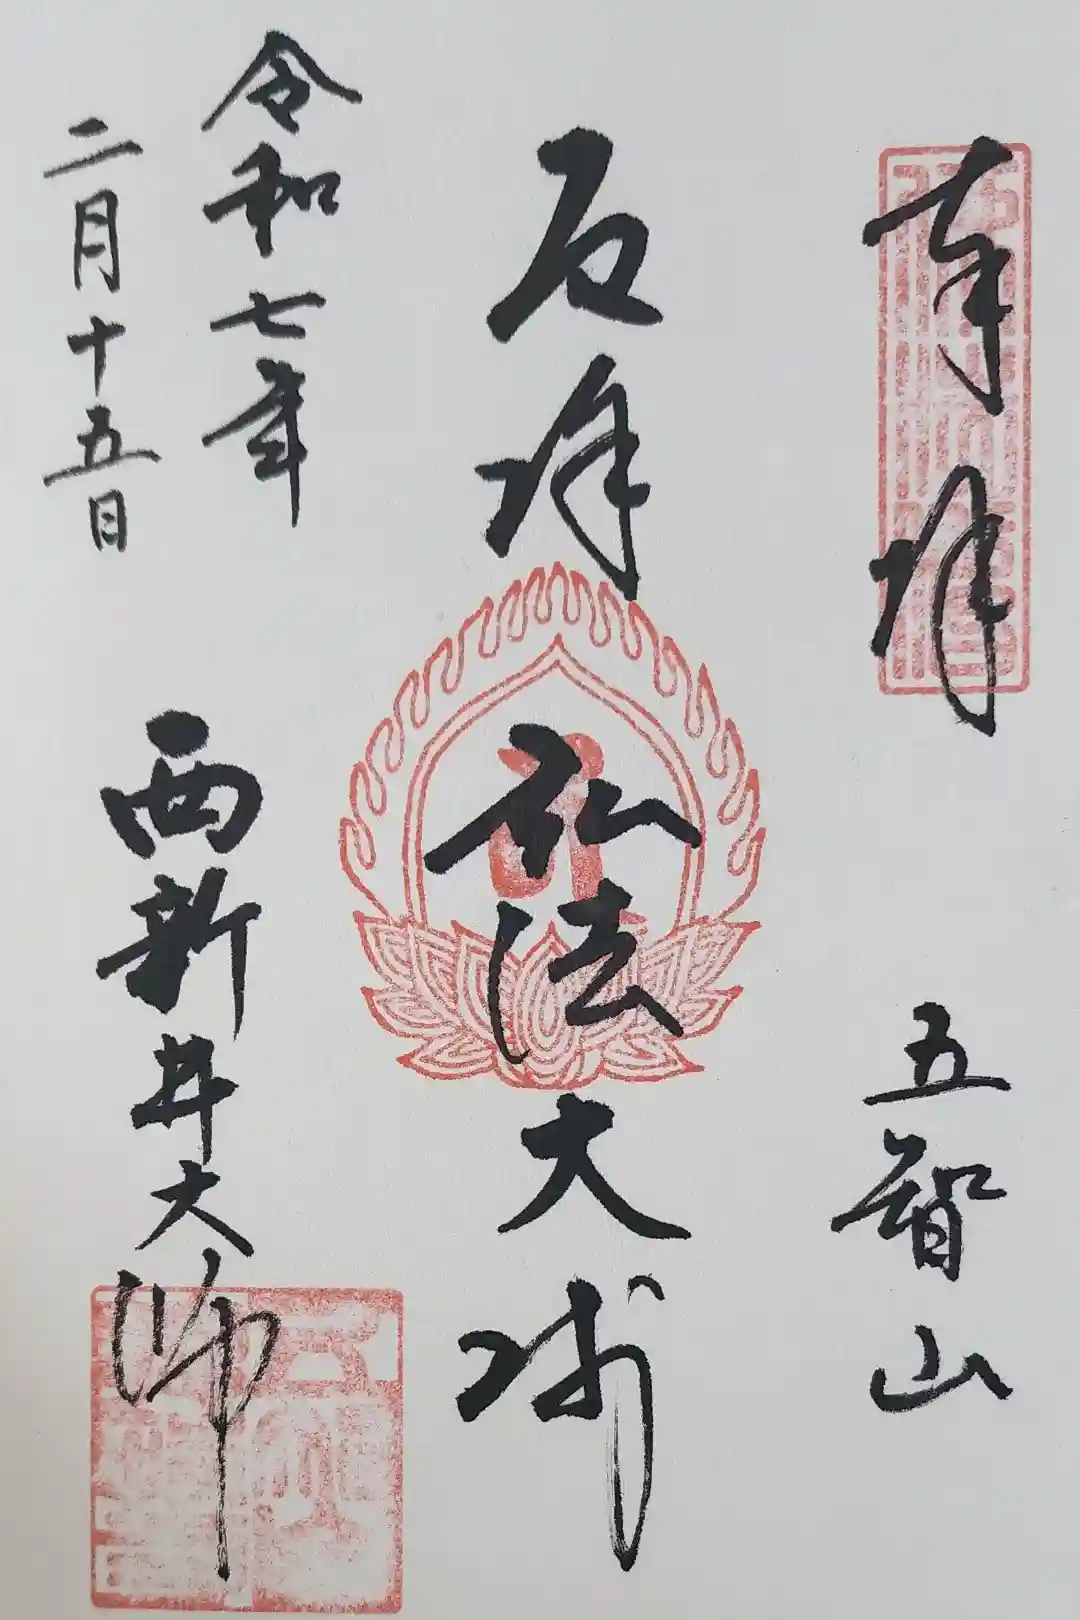 奉拝
五智山
厄除
弘法大師
令和七年
二月十五日
西新井大師